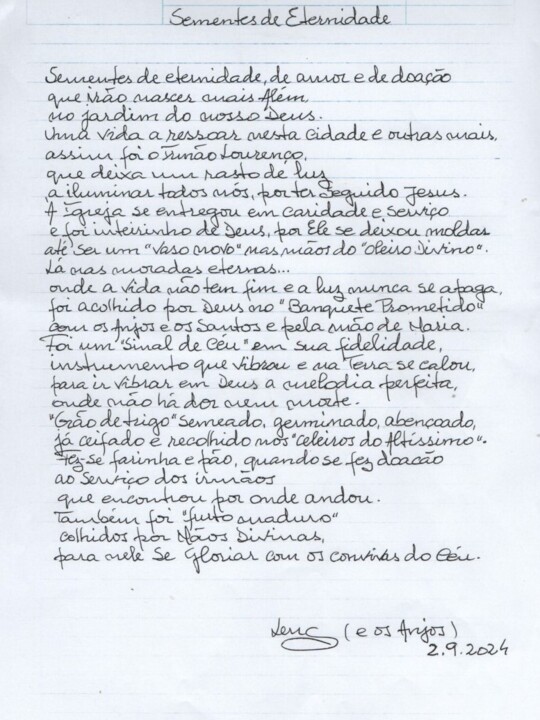 Sementes de Eternidade
Sementes de eternidade, de amor e de doação
que irão nascer mais Além
no jardim do nosso Deus.
Uma vida a ressoar nesta cidade e outras mais,
assim foi o Irmão Lourenço,
que deixa um rasto de luz
a iluminar todos nós, por ter Seguido Jesus.
À Igreja se entregou em caridade e Serviço
e foi inteirinho de Deus, por Ele se deixou moldar
até ser um "vaso novo" nas mãos do "Oleiro Divino".
Lá nas moradas eternas...
onde a vida não tem fim e a luz nunca se apaga,
foi acolhido por Deus no "Banquete Prometido"
com os Anjos e os Santos e pela mão de Maria.
Foi um "Sinal de Céu" em sua fidelidade,
instrumento que vibrou e na Terra se calou,
para ir vibrar em Deus a melodia perfeita,
onde não há dor nem morte.
"Grão de trigo" semeado, germinado, abençoado,
já ceifado e recolhido nos "celeiros do Altíssimo".
Fez-se farinha e pão, quando se fez doação
ao Serviço dos irmãos
que encontrou por onde andou.
Também foi "fruto maduro"
colhidos por Mãos Divinas,
para nele Se Gloriar com os convivas do Céu.
(e os Anjos)
2.9.2024